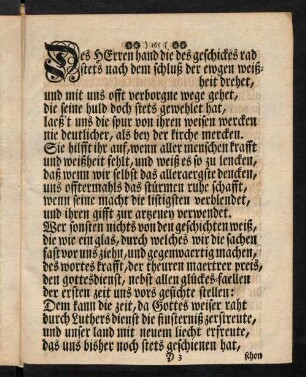 ) 165 (
Des HErren hand die des geschickes rad
stets nach dem schluß der ewgen weiß-
heit drehet,
und mit uns offt verborgne wege gehet,
die seine huld doch stets gewehlet hat,
laeß't uns die spur von ihren weisen wercken
nie deutlicher, als bey der kirche mercken.
Sie hilfft ihr auf, wenn aller menschen krafft
und weißheit fehlt, und weiß es so zu lencken,
daß wenn wir selbst das alleraergste dencken,
uns offtermahls das stürmen ruhe schafft,
wenn seine macht die listigsten verblendet,
und ihren gifft zur artzeney verwendet.
Wer sonsten nichts von den geschichten weiß,
die wie ein glas, durch welches wir die sachen
fast vor uns ziehn, und gegenwaertig machen,
des wortes krafft, der theuren maertrer preis,
den gottesdienst, nebst allen glückes-faellen
der ersten zeit uns vors gesichte stellen:
Dem kann die zeit, da Gottes weiser raht
durch Luthers dienst die finsterniß zerstreute,
und unser land mit neuem liecht erfreute,
das uns bisher noch stets geschienen hat,
D 3 schon